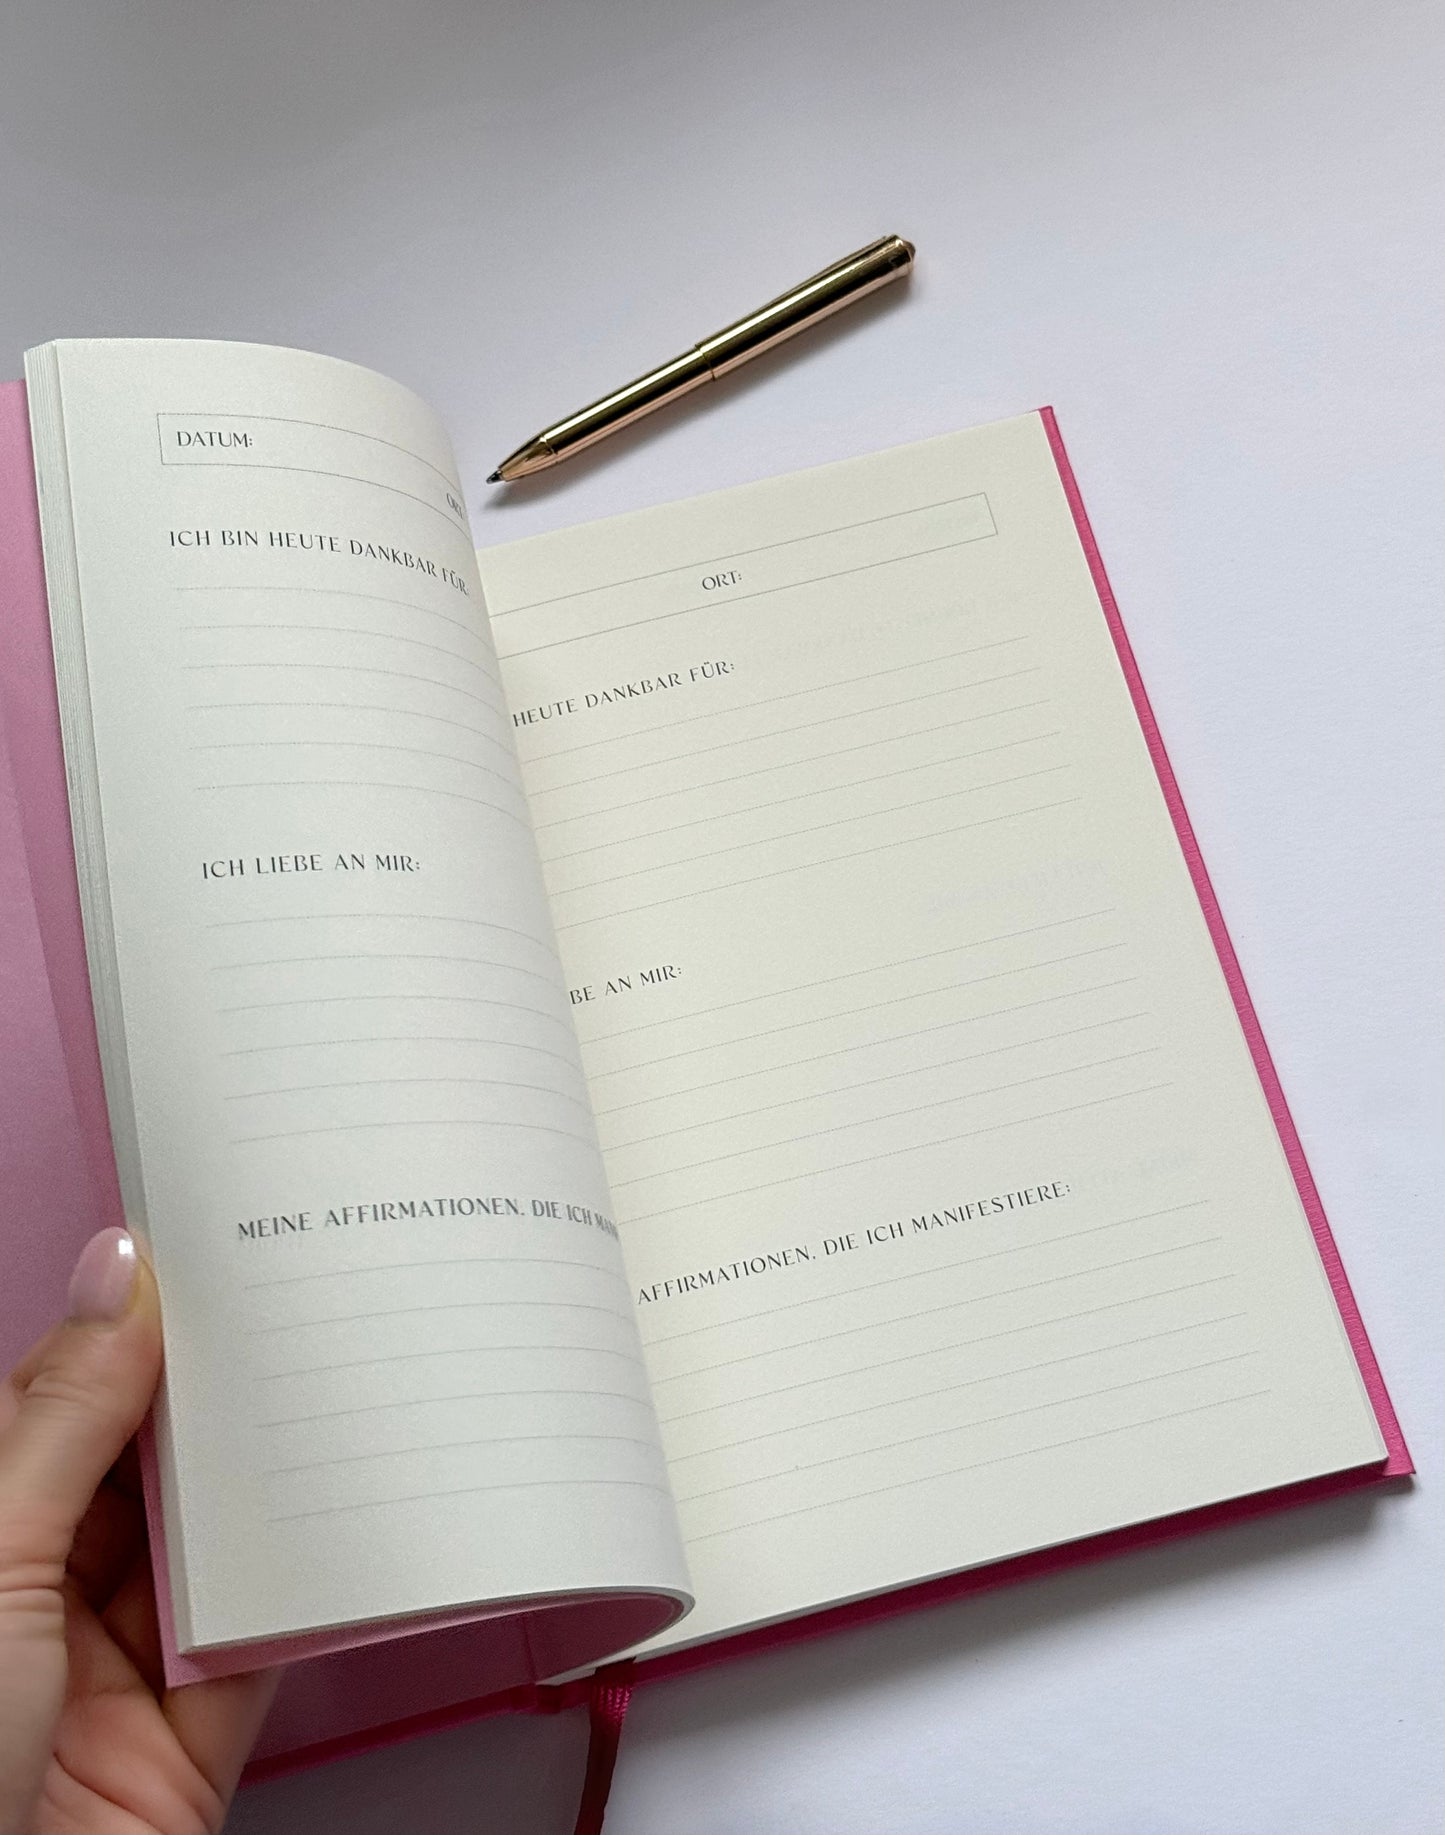 DATUM:
ORT:
ICH BIN HEUTE DANKBAR FÜR:
ICH LIEBE AN MIR:
MEINE AFFIRMATIONEN, DIE ICH MAN
ORT:
HEUTE DANKBAR FÜR:
BE AN MIR:
AFFIRMATIONEN, DIE ICH MANIFESTIERE: